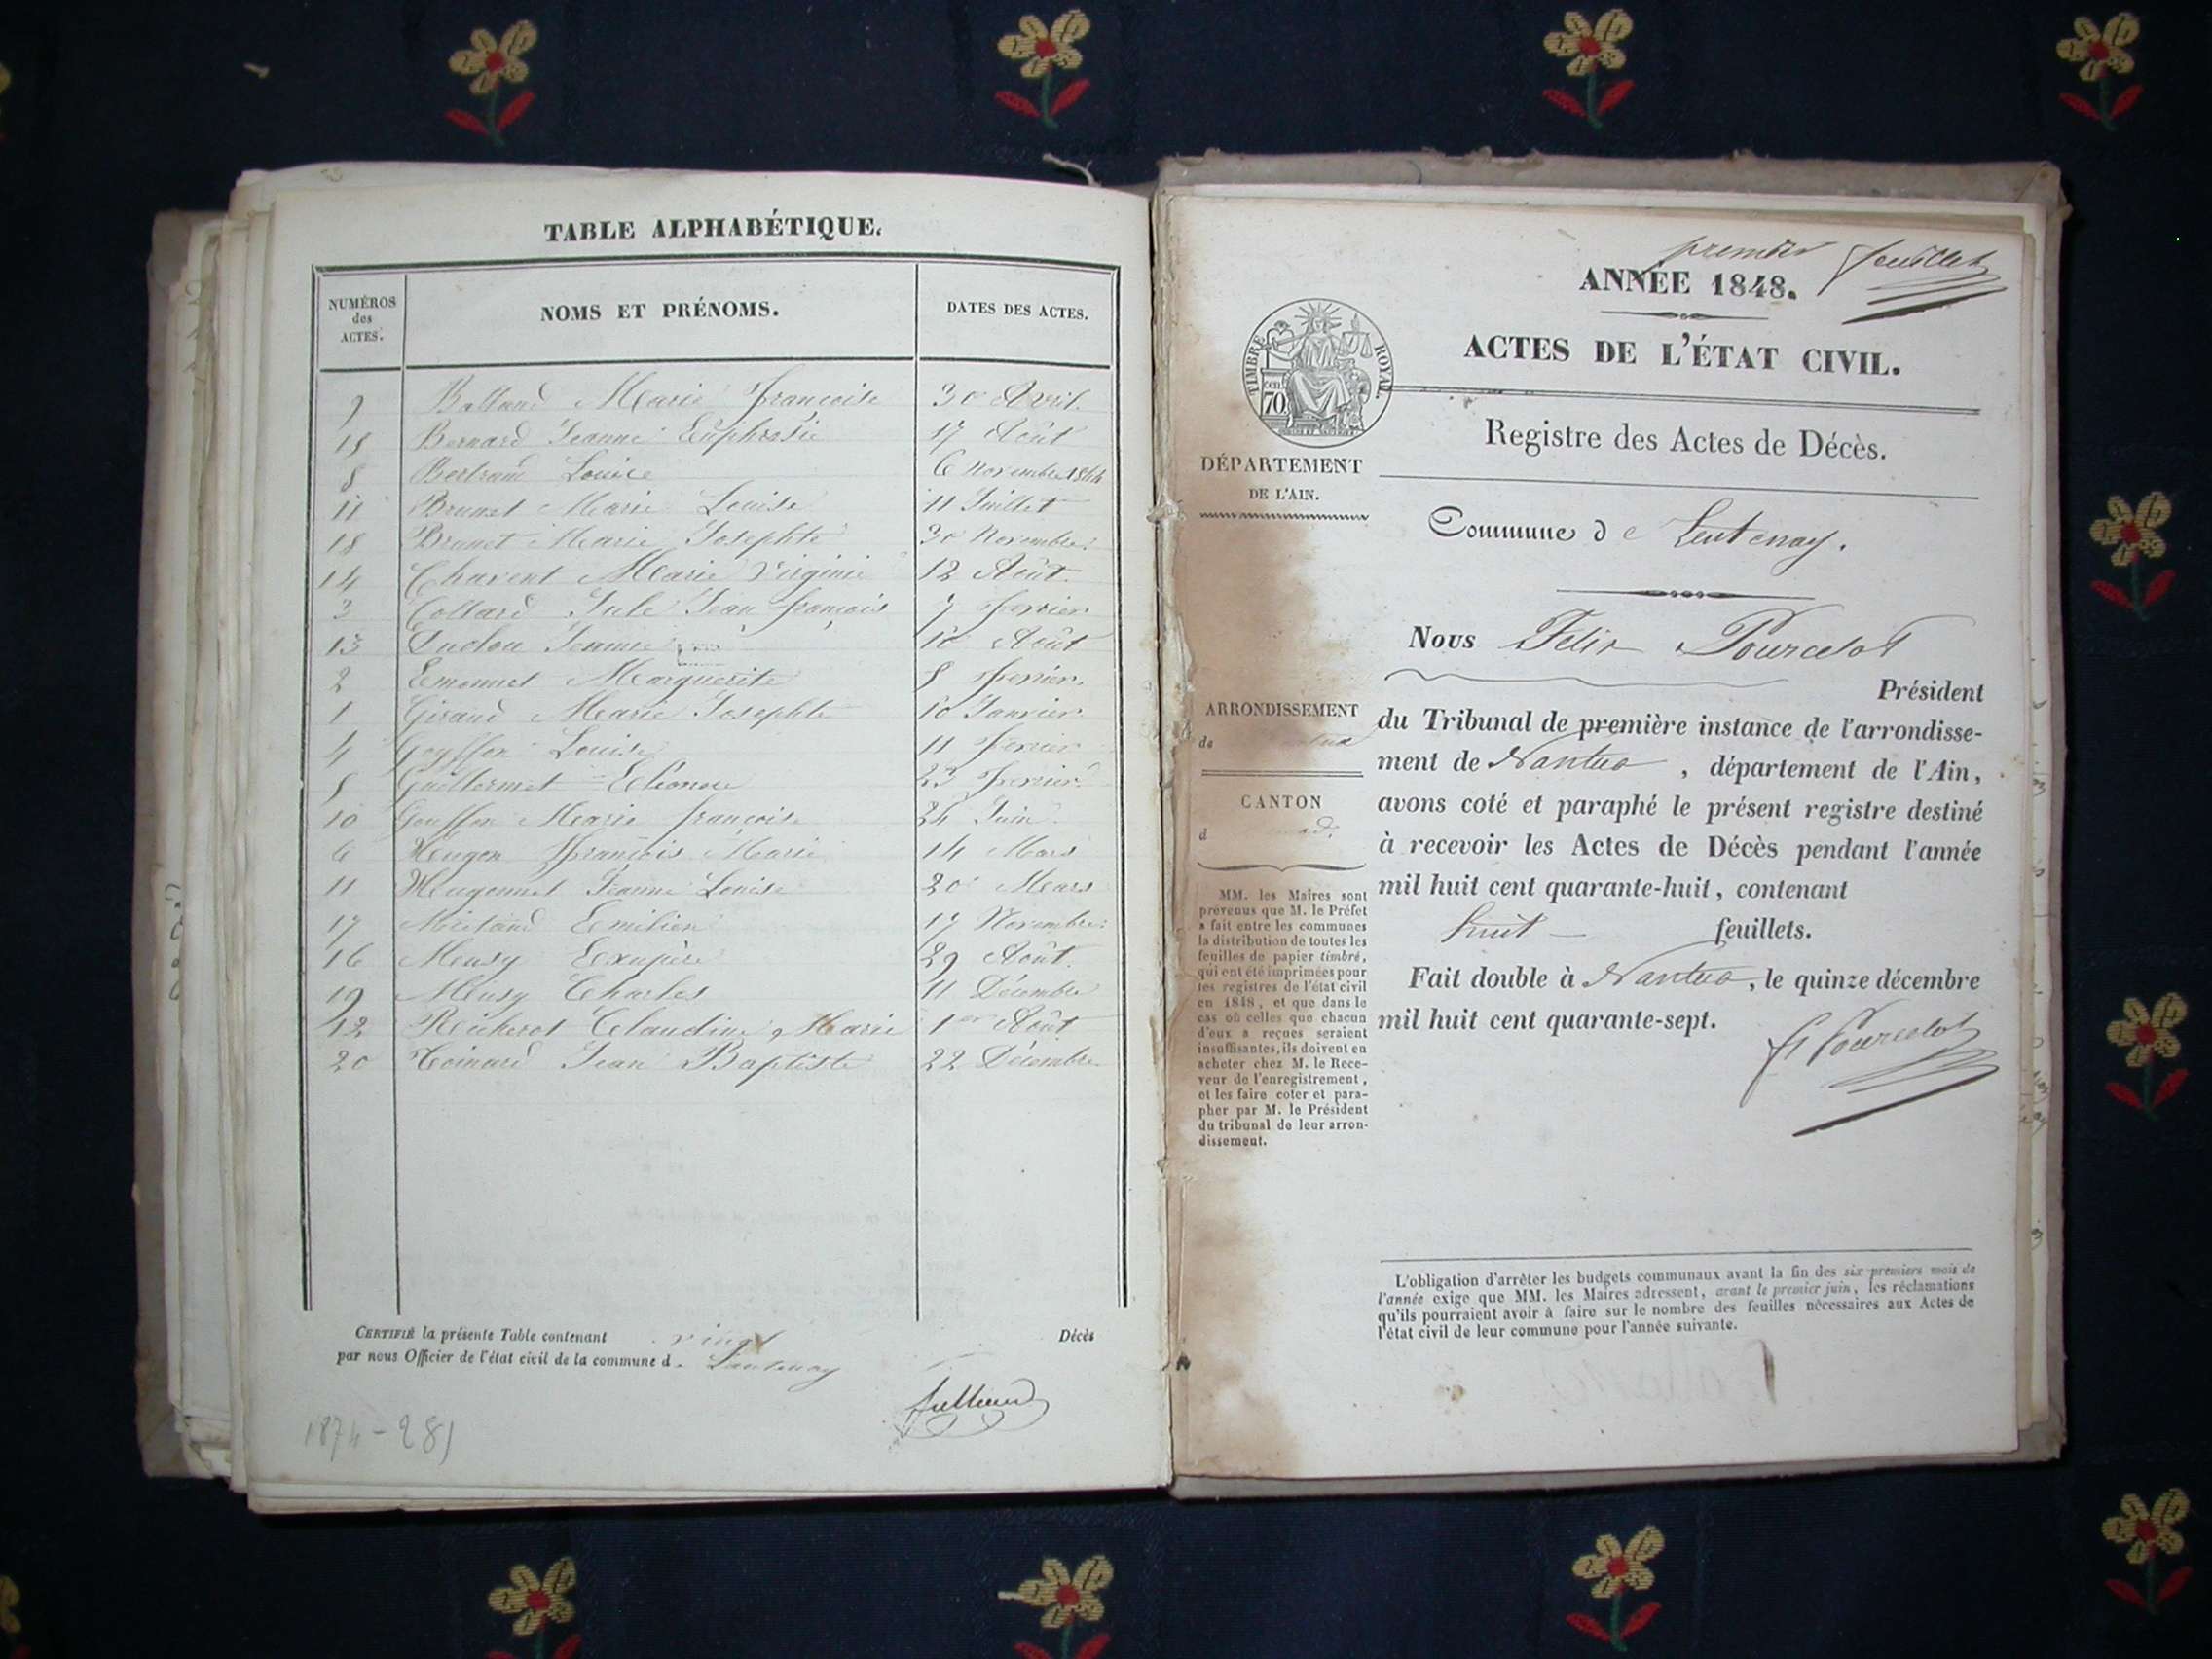 TABLE ALPHABÉTIQUE.
NUMÉROS
des
ACTES.
NOMS ET PRÉNOMS.
DATES DES ACTES.
9 Balland Marie françoise 30 Avril.
15 Bernard Jeanne Euphrosie 17 Août
8 Bertrand Louise 6 Novembre
11 Brunet Marie Louise 11 Juillet
18 Brunet Marie Josephte 30 Novembre.
14 Chavent Marie Virginie 12 Août.
3 Collard Jule Jean françois 7 fevrier
13 Jeanne 10 Août
2 Emonnet Marguerite 5 fevrier.
1 Giraud Marie Josephte 10 Janvier.
4 Louise 11 fevrier
5 Guillermet Eléonore 23 fevrier.
10 Gouffon Marie françoise Juin.
6 Hugon françois Marie 14 Mars
11 Hugonnet Jeanne Louise 20 Mars
17 Emilien 17 Novembre.
16 Musy Exupère 29 Août.
19 Musy Charles 11 Décembre
12 Claudine, Marie 1er Août
20 Jean Baptiste 22 Décembre
CERTIFIÉ la présente Table contenant vingt Décès
par nous Officier de l'état civil de la commune d. Lantenay
premier feuillet
ANNÉE 1848.
TIMBRE ROYAL
cen.
70
ACTES DE L'ÉTAT CIVIL.
Registre des Actes de Décès.
DÉPARTEMENT
DE L'AIN.
Commune de Lentenay.
Nous Félix Pourcelot
Président
ARRONDISSEMENT
de
du Tribunal de première instance de l'arrondisse-
ment de Nantua, département de l'Ain,
CANTON
d
avons coté et paraphé le présent registre destiné
à recevoir les Actes de Décès pendant l'année
mil huit cent quarante-huit, contenant
huit feuillets.
Fait double à Nantua, le quinze décembre
mil huit cent quarante-sept.
F Pourcelot
MM. les Maires sont
prévenus que M. le Préfet
a fait entre les communes
la distribution de toutes les
feuilles de papier timbré,
qui ont été imprimées pour
les registres de l'état civil
en 1848, et que dans le
cas où celles que chacun
d'eux a reçues seraient
insuffisantes, ils doivent en
acheter chez M. le Rece-
veur de l'enregistrement,
et les faire coter et para-
pher par M. le Président
du tribunal de leur arron-
dissement.
L'obligation d'arrêter les budgets communaux avant la fin des six premiers mois de
l'année exige que MM. les Maires adressent, avant le premier juin, les réclamations
qu'ils pourraient avoir à faire sur le nombre des feuilles nécessaires aux Actes de
l'état civil de leur commune pour l'année suivante.